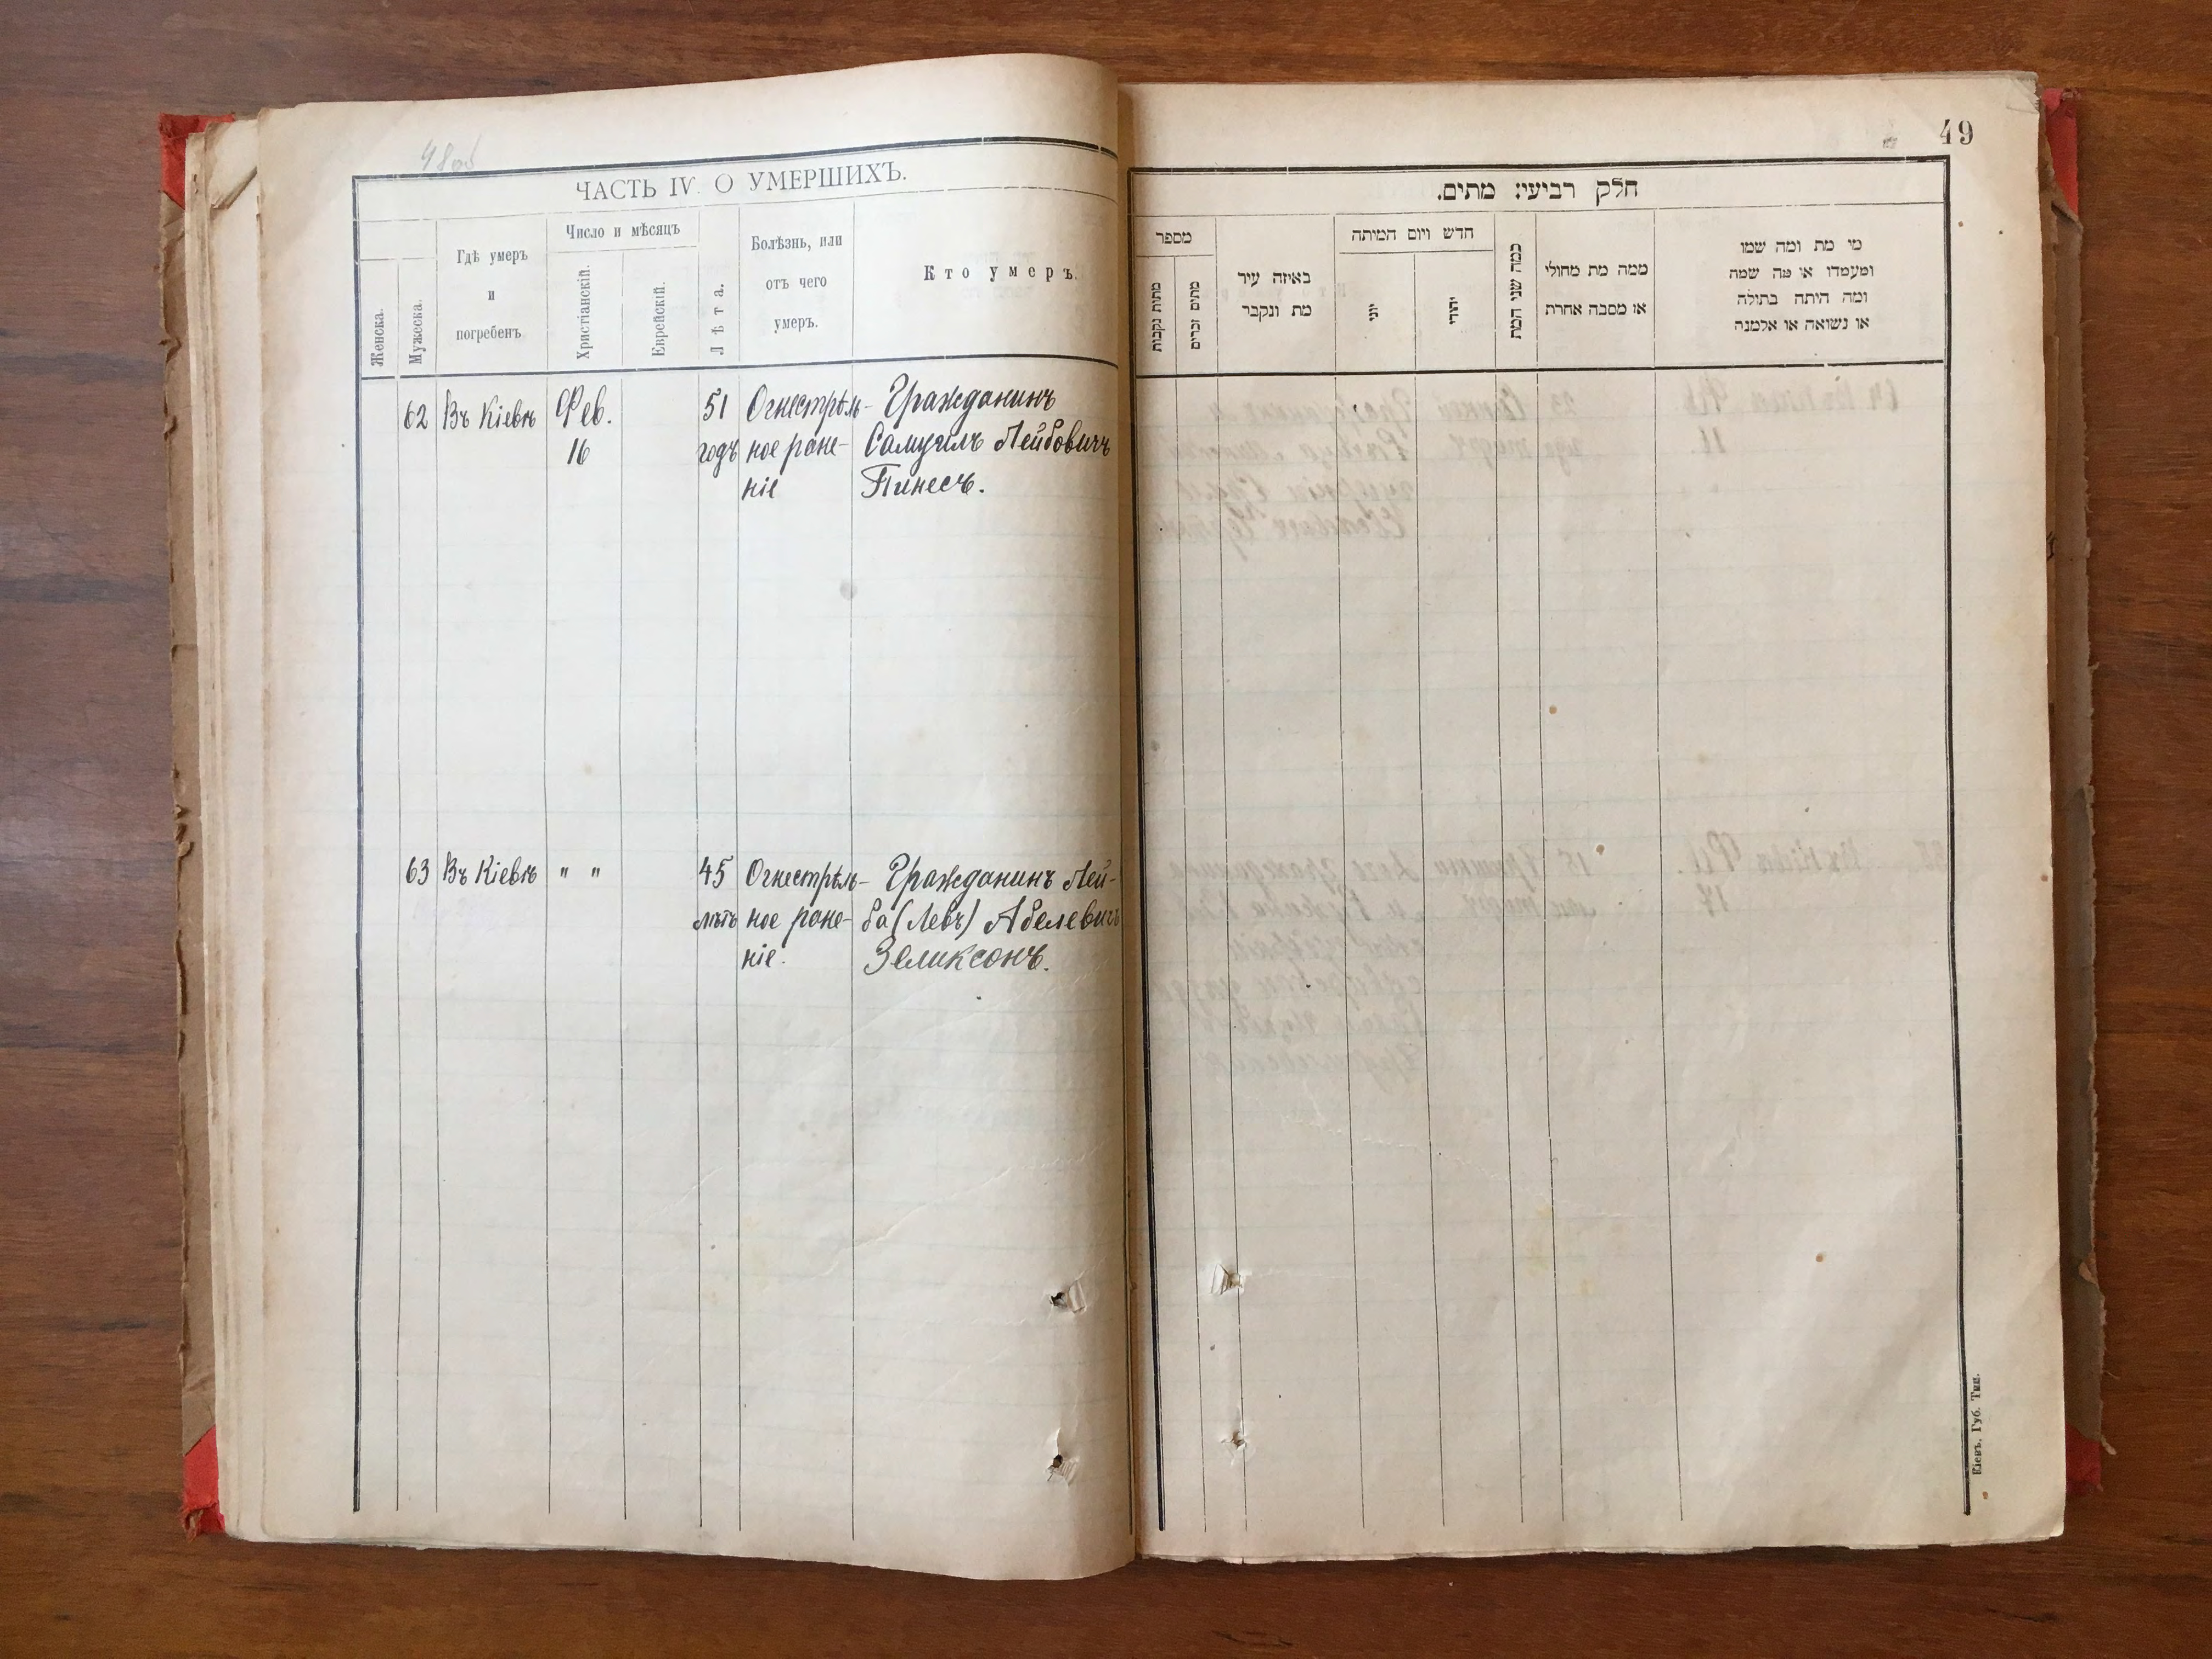 48об
ЧАСТЬ IV. О УМЕРШИХЪ.
Женска.
Мужеска.
Гдѣ умеръ
и
погребенъ
Число и мѣсяцъ
Христіанскій.
Еврейскій.
Лѣта.
Болѣзнь, или
отъ чего
умеръ.
Кто умеръ.
62 Въ Кіевѣ Фев. 51 Огнестрѣль- Гражданинъ
16 годъ ное ране- Самуилъ Лейбовичъ
ніе Пинесъ.
63 Въ Кіевѣ " " 45 Огнестрѣль- Гражданинъ Лей-
лѣтъ ное ране- ба (Левъ) Абелевичъ
ніе. Зеликсонъ.
49
חלק רביעי: מתים.
מספר
מתות נקבות
מתים זכרים
באיזה עיר
מת ונקבר
חדש ויום המיתה
יוני
יהודי
כמה שני המת
ממה מת מחולי
או מסבה אחרת
מי מת ומה שמו
ומעמדו או מה שמה
ומה היתה בתולה
או נשואה או אלמנה
Кіевъ. Губ. Тип.